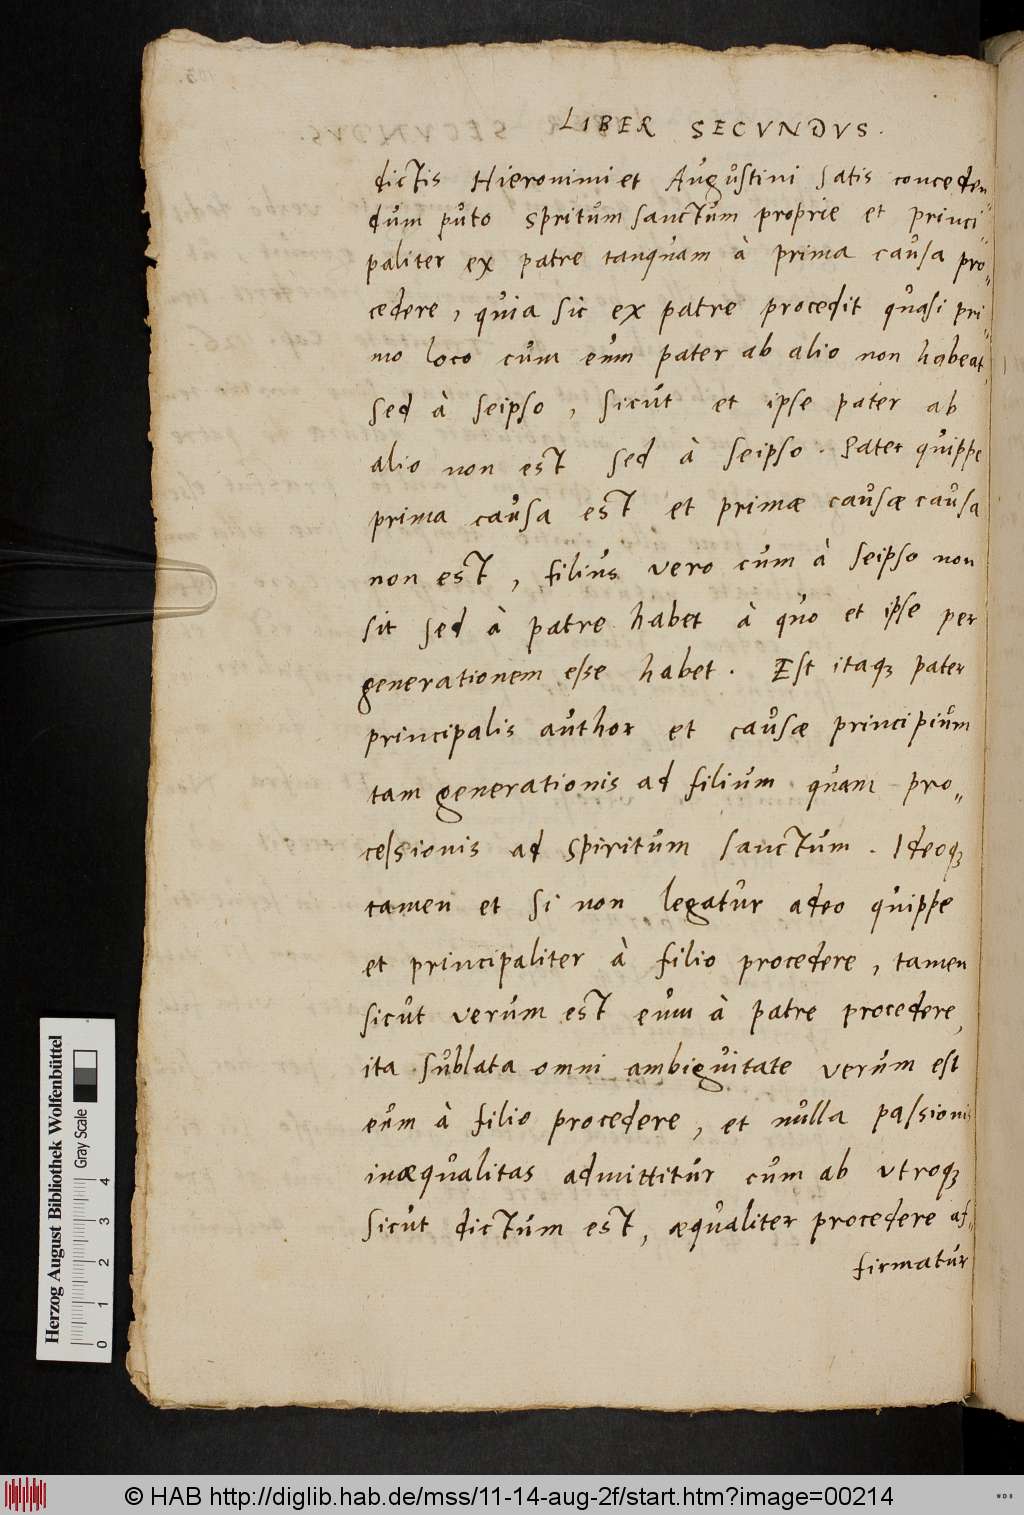 LIBER SECVNDVS.
dictis Hieronimi et Augustini satis conceden„
dum puto spritum sanctum proprie et princi„
paliter ex patre tanquam à prima causa pro„
cedere, quia sic ex patre procedit quasi pri„
mo loco cum eum pater ab alio non habeat,
sed à seipso, sicut et ipse pater ab
alio non est sed à seipso. Pater quippe
prima causa est et primæ causæ causa
non est, filius vero cum à seipso non
sit sed à patre habet à quo et ipse per
generationem esse habet. Est itaqꝫ pater
principalis author et causæ principium
tam generationis ad filium quam pro„
cessionis ad spiritum sanctum. Ideoqꝫ
tamen et si non legatur adeo quippe
et principaliter à filio procedere, tamen
sicut verum est eum à patre procedere,
ita sublata omni ambiguitate verum est
eum à filio procedere, et nulla passionis
inæqualitas admittitur cum ab vtroqꝫ
sicut dictum est, æqualiter procedere af„
firmatur
Herzog August Bibliothek Wolfenbüttel
Gray Scale
0 1 2 3 4
© HAB http://diglib.hab.de/mss/11-14-aug-2f/start.htm?image=00214